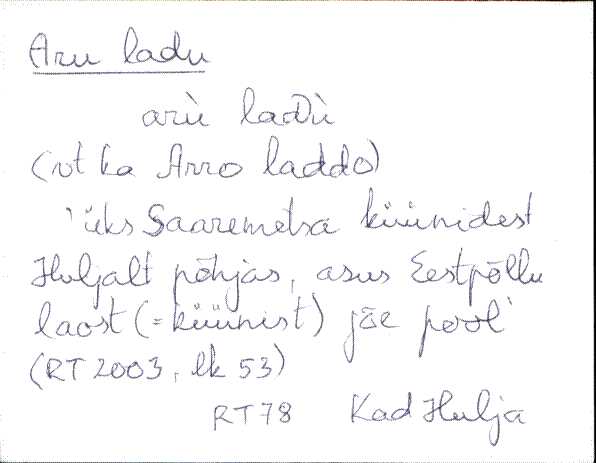 Aru ladu
arù laDù
(vt ka Arro laddo)
'üks Saaremetsa küünidest
Huljalt põhjas, asus Eestpõllu
laost (= küünist) jõe pool'
(RT 2003, lk 53)
RT78 Kad Hulja